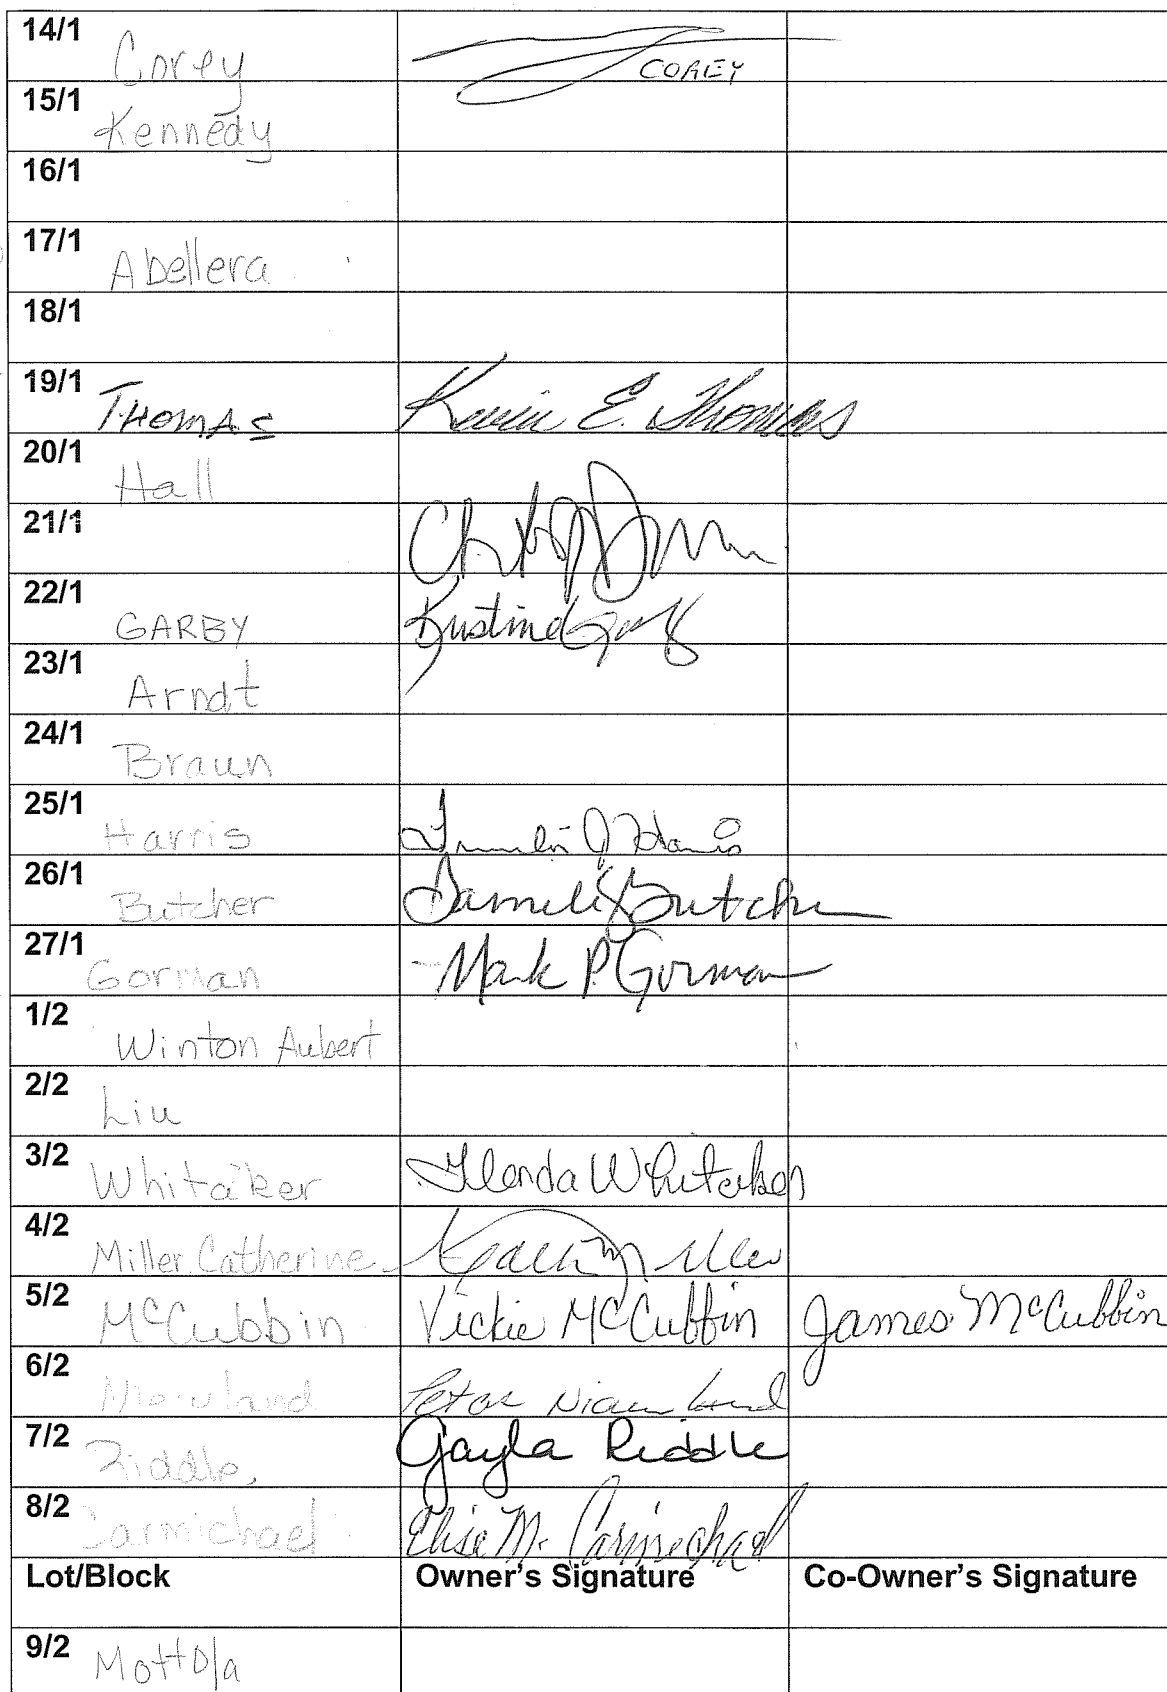 14/1 Corey COREY
15/1 Kennedy
16/1
17/1 Abellera
18/1
19/1 THOMAS Kevin E. Thomas
20/1 Hall
21/1
22/1 GARBY Kristine Garby
23/1 Arndt
24/1 Braun
25/1 Harris J Harris
26/1 Butcher Butcher
27/1 Gorman Mark P. Gorman
1/2 Winton Aubert
2/2 Liu
3/2 Whitaker Whitaker
4/2 Miller Catherine Miller
5/2 McCubbin Vickie McCubbin James McCubbin
6/2
7/2 Riddle, Gayla Riddle
8/2 Carmichael Elise M. Carmichael
Lot/Block Owner's Signature Co-Owner's Signature
9/2 Mottola